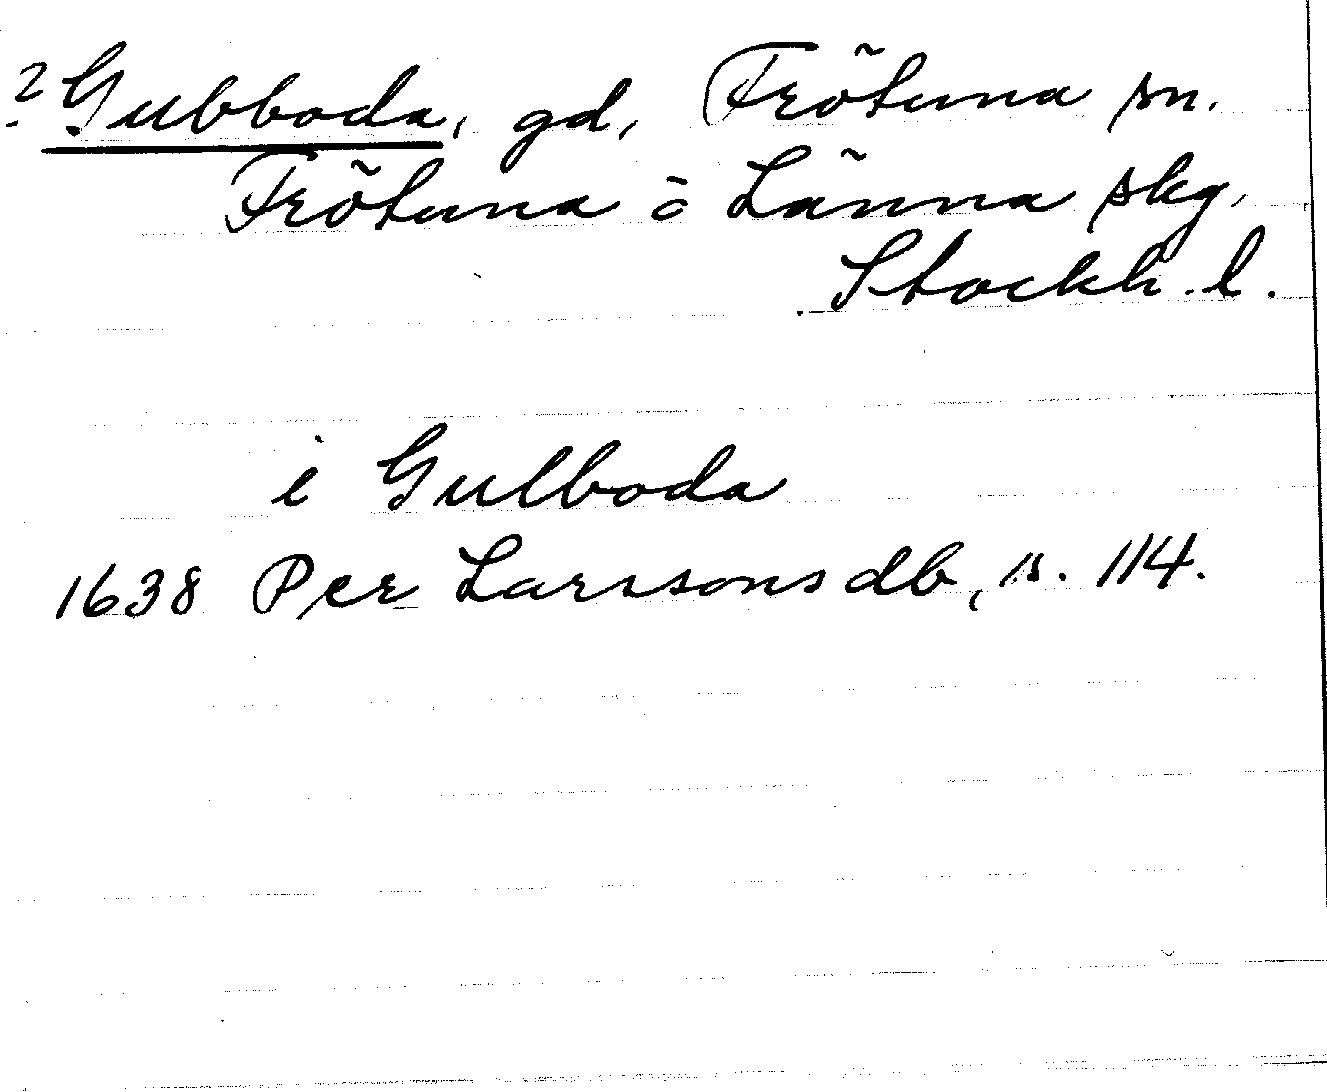 ? Gubboda, gd, Frötuna sn.
Frötuna o Länna skg.
Stockh. l.
i Gulboda
1638 Per Larssons db, s. 114.